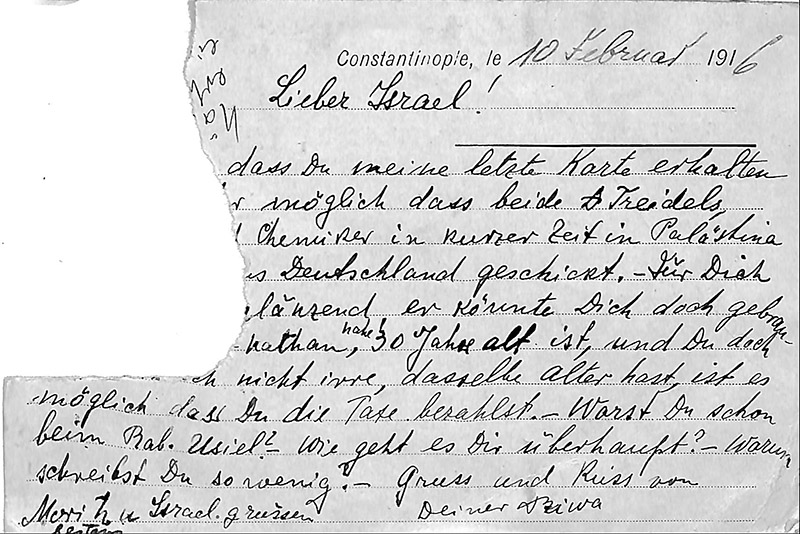 Constantinople, le 10 Februar 1916
Lieber Israel!
dass Du meine letzte Karte erhalten
möglich dass beide Treidels,
Chemiker in kurzer Zeit in Palästina
Deutschland geschickt. - Für Dich
länzend, er könnte Dich doch gebrau-
nathan, 30 Jahre alt ist, und Du doch
h nicht irre, dasselbe alter hast, ist es
möglich dass Du die Taxe bezahlst. - Warst Du schon
beim Rab. Usiel? - Wie geht es Dir überhaupt? - Warum
schreibst Du so wenig? - Gruss und Kuss von
Moritz u Israel grüssen Deiner Ziwa
bestens